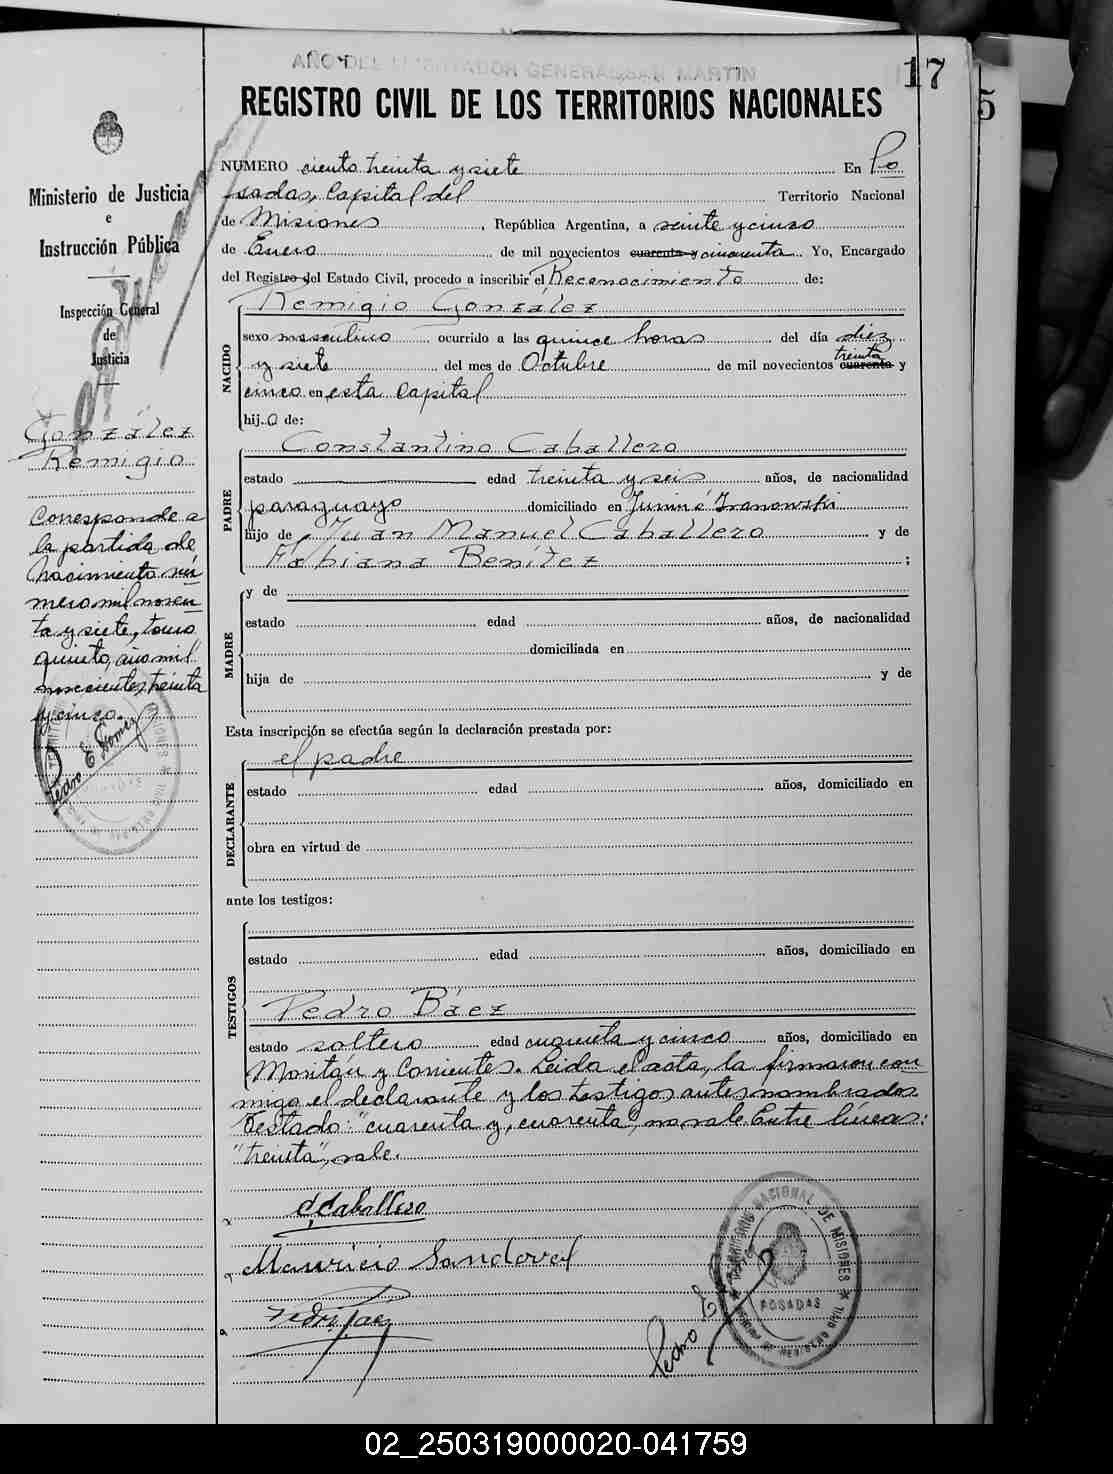 AÑO DEL LIBERTADOR GENERAL SAN MARTIN
17
5
REGISTRO CIVIL DE LOS TERRITORIOS NACIONALES
Ministerio de Justicia
e
Instrucción Pública
Inspección General
de
Justicia
González
Remigio
Corresponde a
la partida de
nacimiento nú
mero mil noven
ta y siete, tomo
quinto, año mil
novecientos treinta
y cinco.
Pedro E Gomez
NUMERO ciento treinta y siete En Po
sadas, Capital del Territorio Nacional
de Misiones, República Argentina, a veinte y cinco
de Enero de mil novecientos cuarenta y cincuenta. Yo, Encargado
del Registro del Estado Civil, procedo a inscribir el Reconocimiento de:
NACIDO
Remigio González
sexo masculino ocurrido a las quince horas del día diez
treinta
y siete del mes de Octubre de mil novecientos cuarenta y
cinco en esta capital
hijo de:
PADRE
Constantino Caballero
estado edad treinta y seis años, de nacionalidad
paraguayo domiciliado en Junín é Iranowski
hijo de Juan Manuel Caballero y de
Fabiana Benítez ;
MADRE
y de
estado edad años, de nacionalidad
domiciliada en
hija de y de
Esta inscripción se efectúa según la declaración prestada por:
DECLARANTE
el padre
estado edad años, domiciliado en
obra en virtud de
ante los testigos:
TESTIGOS
estado edad años, domiciliado en
Pedro Báez
estado soltero edad cuarenta y cinco años, domiciliado en
Moritán y Corrientes. Leida el acta, la firmaron con
migo el declarante y los testigos antes nombrados.
Testado: "cuarenta y, cuarenta", no vale. Entre líneas:
"treinta", vale.
C. Caballero
Mauricio Sandoval
Pedro Baez
Pedro E
TERRITORIO NACIONAL DE MISIONES
POSADAS
02_250319000020-041759